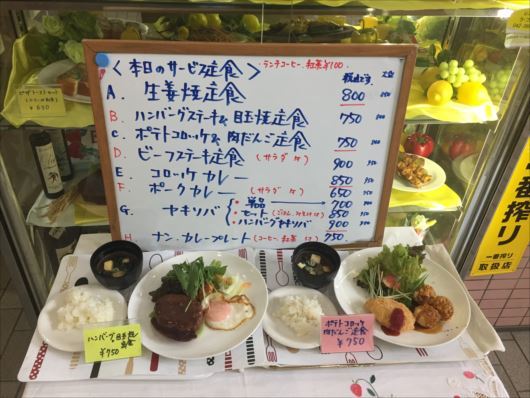 ピザトーストセット
¥650
<本日のサービス定食>
・ランチコーヒー、紅茶¥100
A. 生姜焼定食 800 850
B. ハンバーグステーキ&目玉焼定食 750
C. ポテトコロッケ&肉だんご定食 750
D. ビーフステーキ定食 (サラダ付) 900 950
E. コロッケカレー 850 950
F. ポークカレー (サラダ付) 650 750
G. ヤキソバ ・単品 → 700 800
・セット 850 950
・ハンバーグヤキソバ 900
H. ナン・カレープレート (コーヒー、紅茶付) 750
ハンバーグ目玉焼
定食
¥750
ポテトコロッケ
肉だんご定食
¥750
一番搾り
一番搾り
取扱店